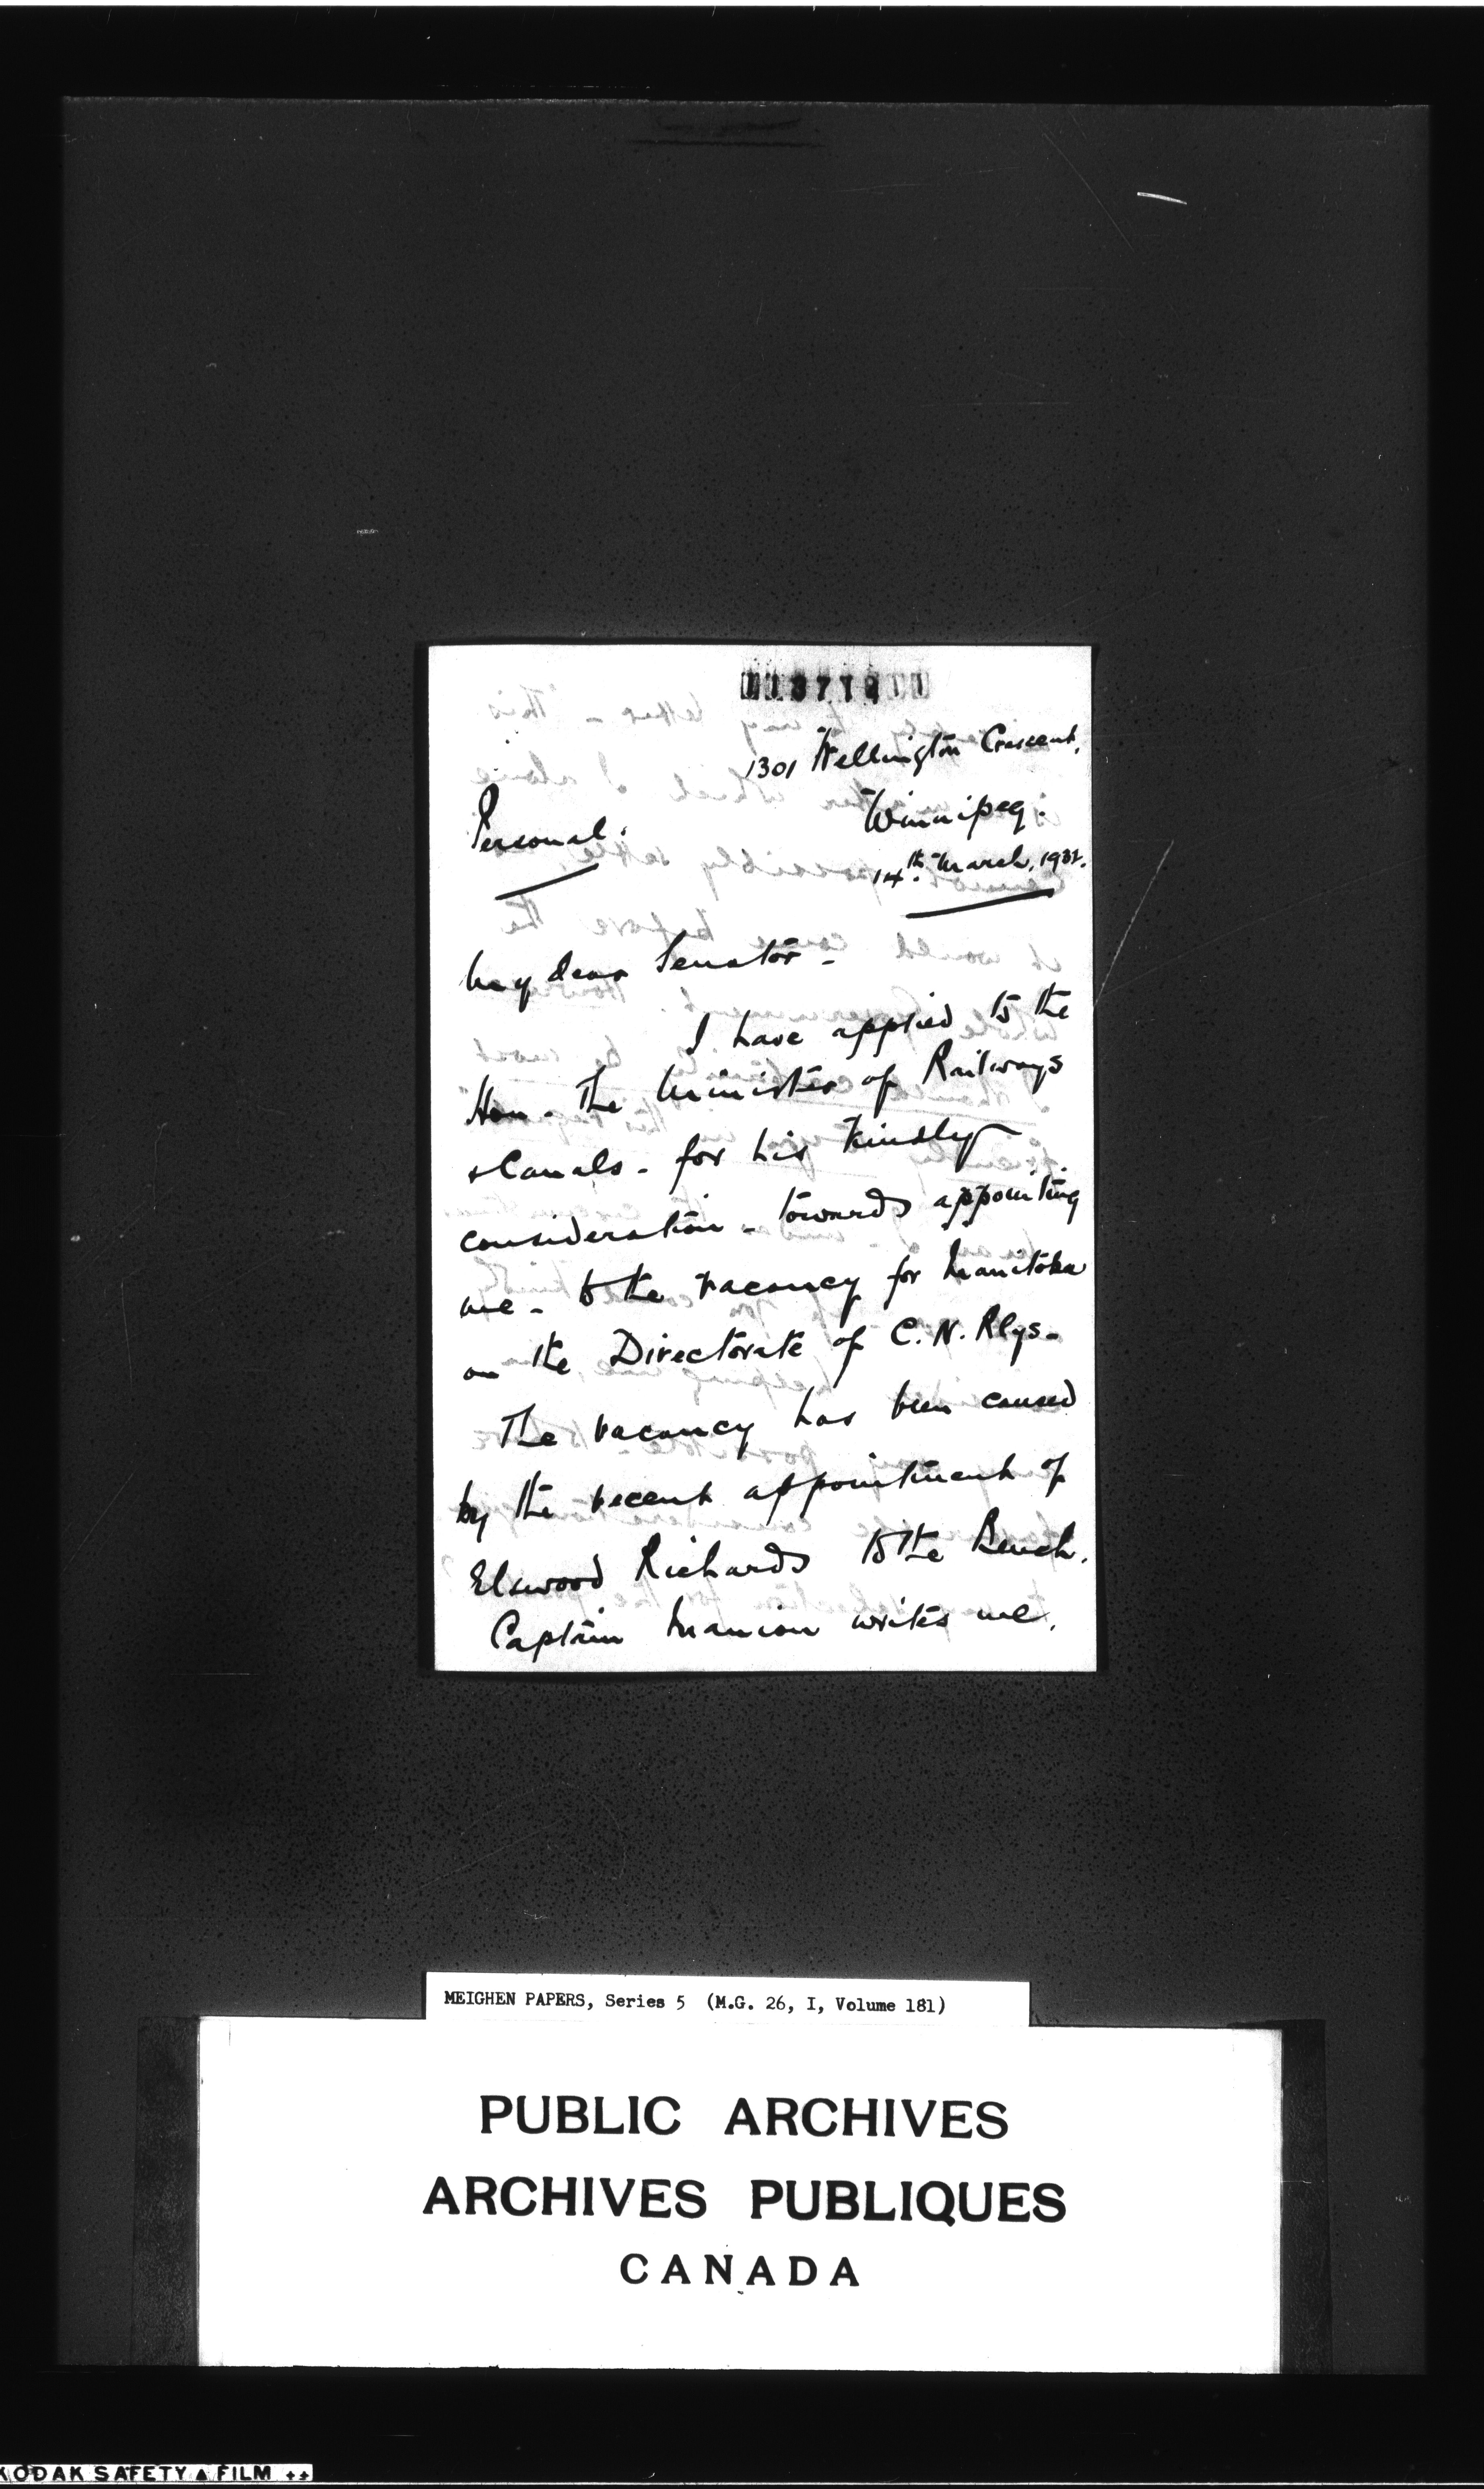 1301 Wellington Crescent,
Winnipeg.
Personal.
14th March, 1932.
My dear Senator -
I have applied to the
Hon. The Minister of Railways
& Canals - for his kindly
consideration - towards appointing
me - to the vacancy for Manitoba
on the Directorate of C. N. Rlys -
The vacancy has been caused
by the recent appointment of
Elswood Richards to the Bench.
Captain Manion writes me.
MEIGHEN PAPERS, Series 5 (M.G. 26, I, Volume 181)
PUBLIC ARCHIVES
ARCHIVES PUBLIQUES
CANADA
KODAK SAFETY ▲ FILM ++